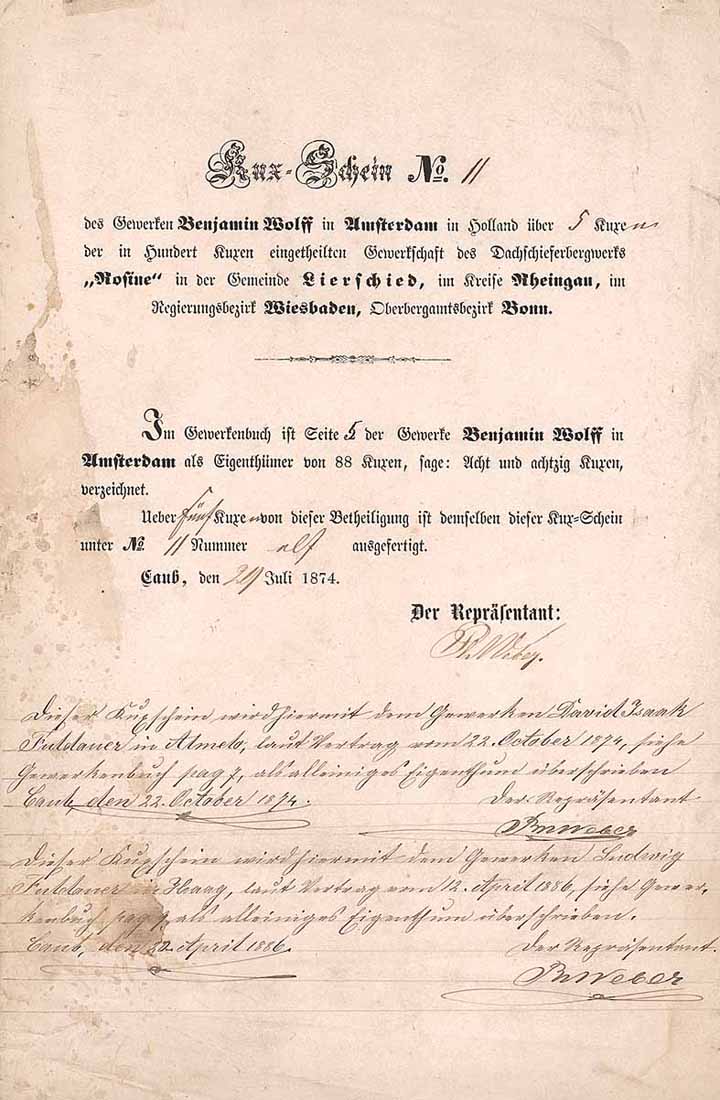 Kux-Schein No. 11
des Gewerken Benjamin Wolff in Amsterdam in Holland über 5 Kuxen
der in Hundert Kuxen eingetheilten Gewerkschaft des Dachschieferbergwerks
„Rosine“ in der Gemeinde Lierschied, im Kreise Rheingau, im
Regierungsbezirk Wiesbaden, Oberbergamtsbezirk Bonn.
Im Gewerkenbuch ist Seite 5 der Gewerke Benjamin Wolff in
Amsterdam als Eigenthümer von 88 Kuxen, sage: Acht und achtzig Kuxen,
verzeichnet.
Ueber fünf Kuxen von dieser Betheiligung ist demselben dieser Kux-Schein
unter No. 11 Nummer elf ausgefertigt.
Caub, den 29 Juli 1874.
Der Repräsentant:
Ph Weber.
Dieser Kuxschein wird hiermit dem Gewerken David Isaak
Fuldauer in Almelo, laut Vertrag vom 22. October 1874, siehe
Gewerkenbuch pag 7, als alleiniges Eigenthum überschrieben
Caub, den 22. October 1874.
Der Repräsentant
PhWeber
Dieser Kuxschein wird hiermit dem Gewerken Ludwig
Fuldauer in Haag, laut Vertrag vom 12. April 1886, siehe Gewer-
kenbuch pag 7, als alleiniges Eigenthum überschrieben.
Caub, den 22. April 1886.
Der Repräsentant.
PhWeber